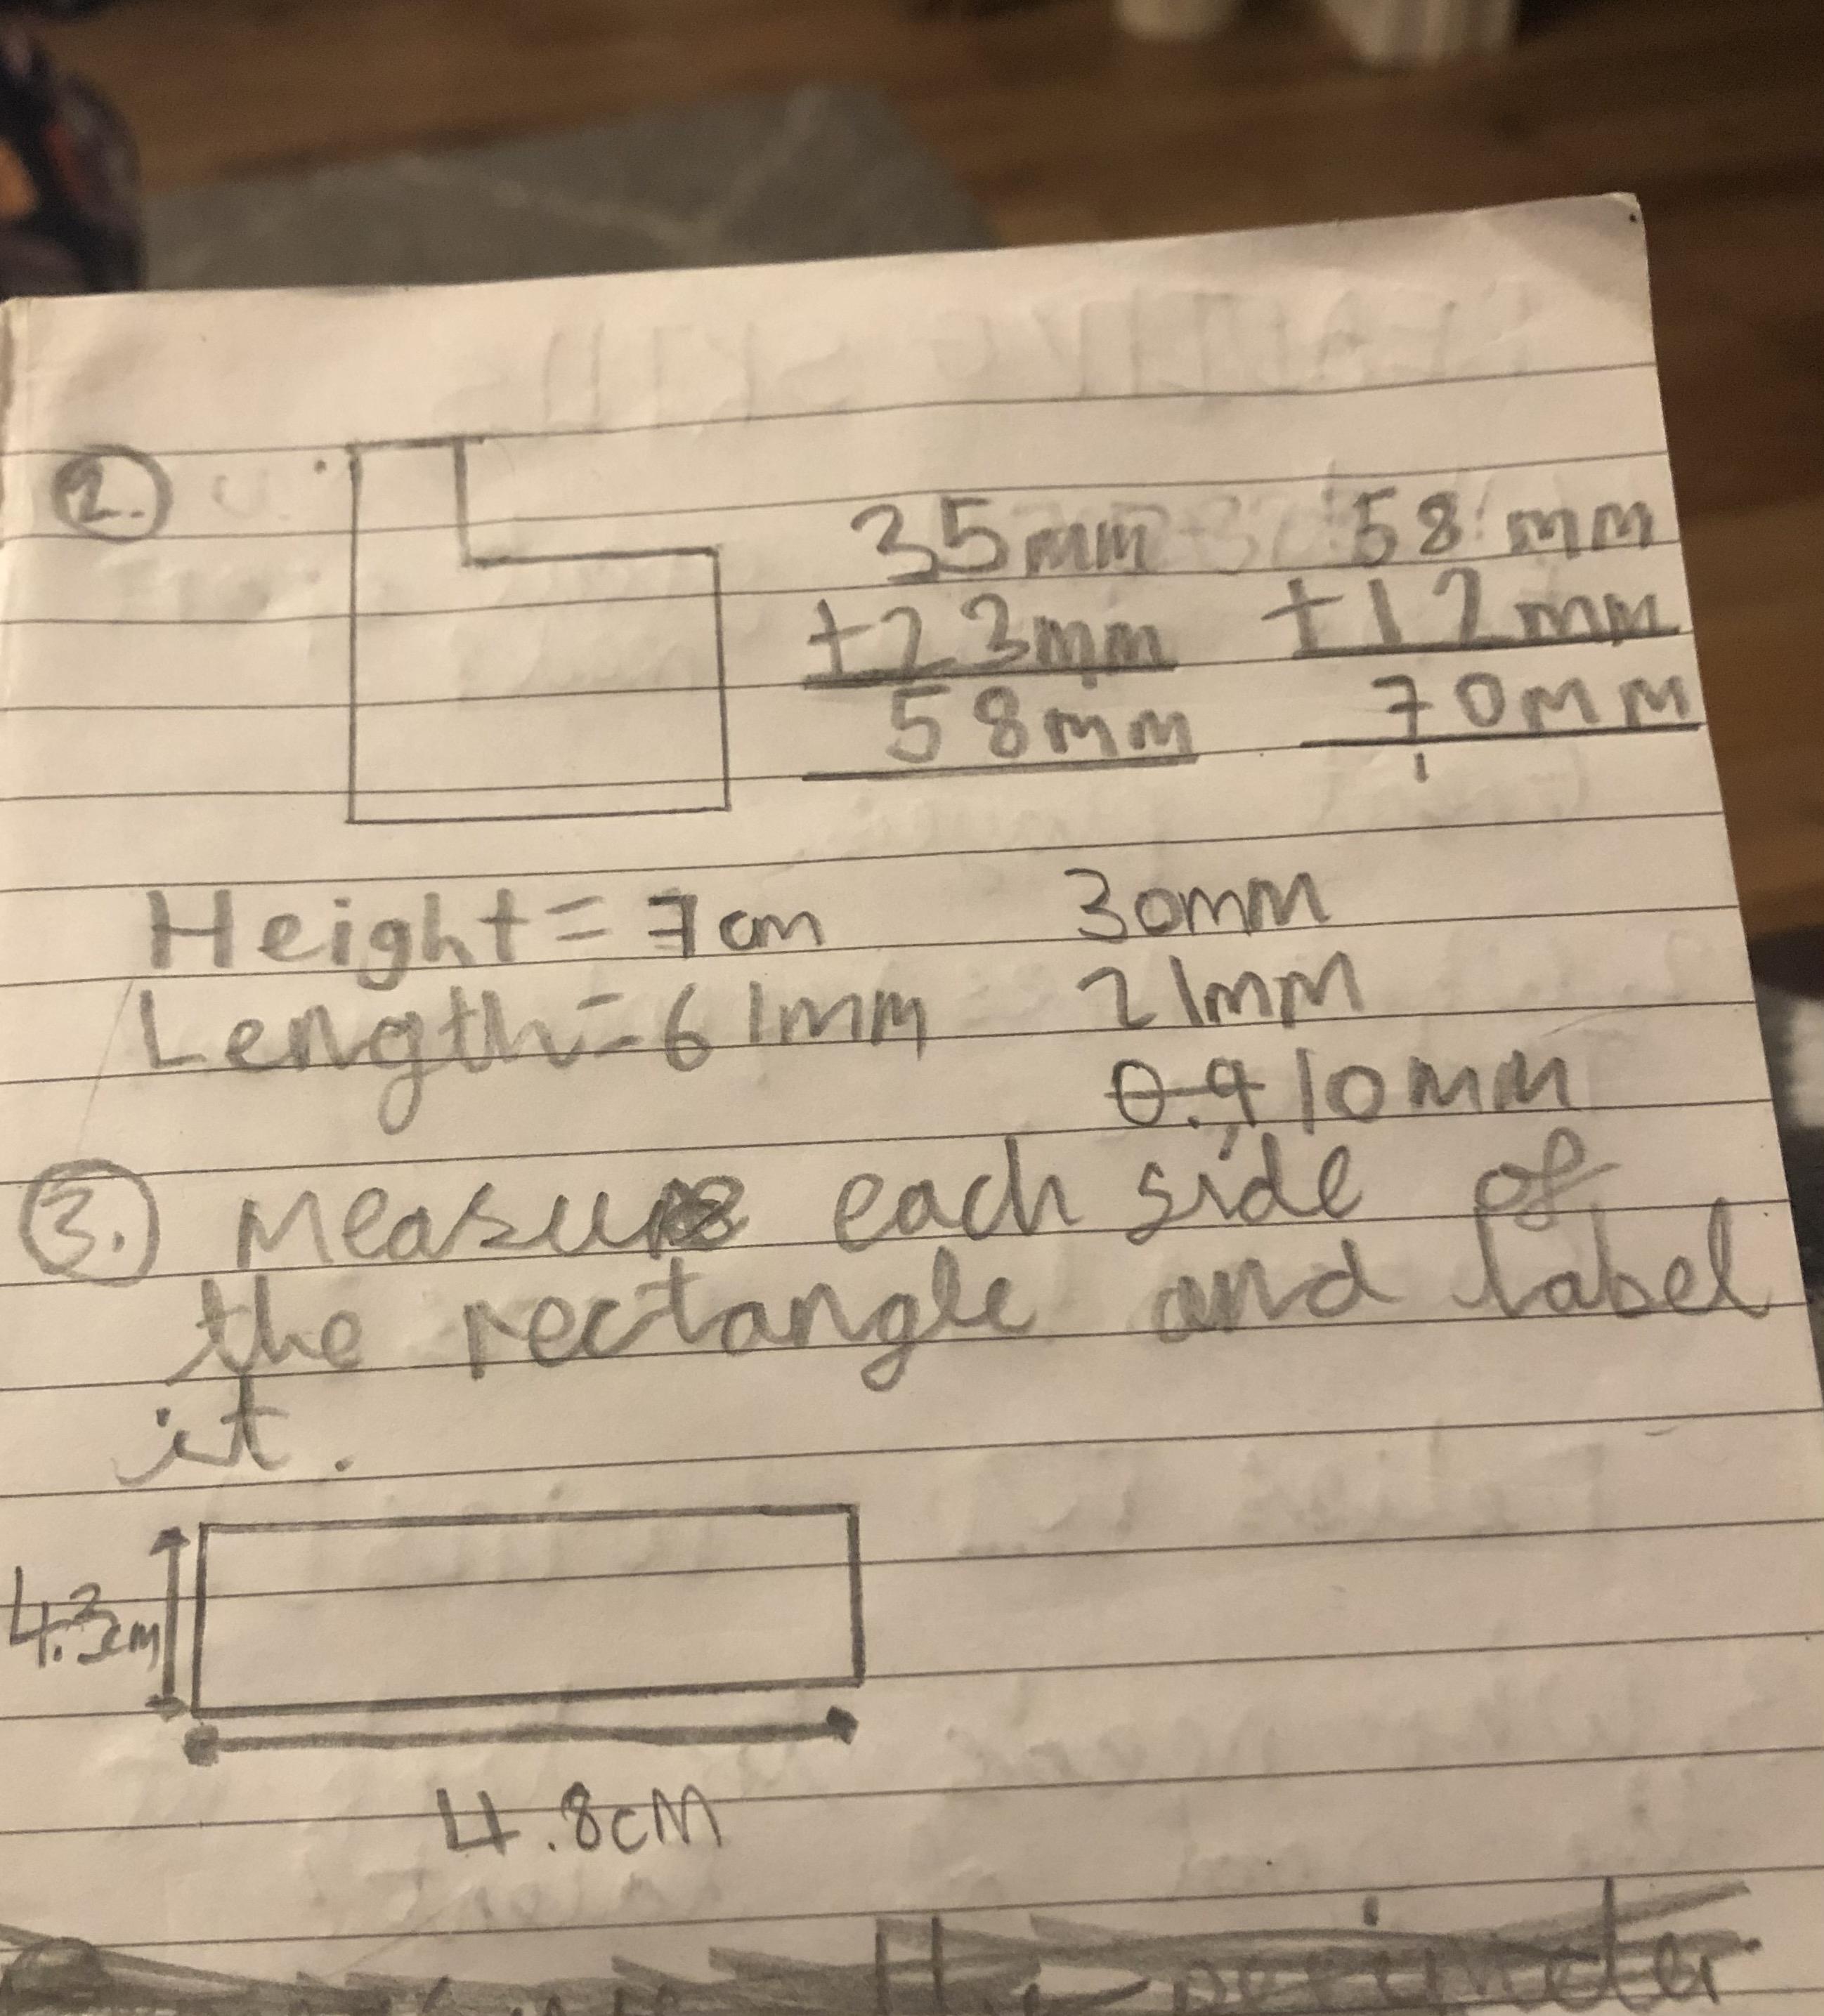 2.
35mm
+23mm
58mm
58 mm
+12mm
70mm
1
Height = 7cm
Length = 61mm
30mm
21mm
0.9 10mm
3. Measure each side of
the rectangle and label
it.
4.3cm
4.8cm
perimeter